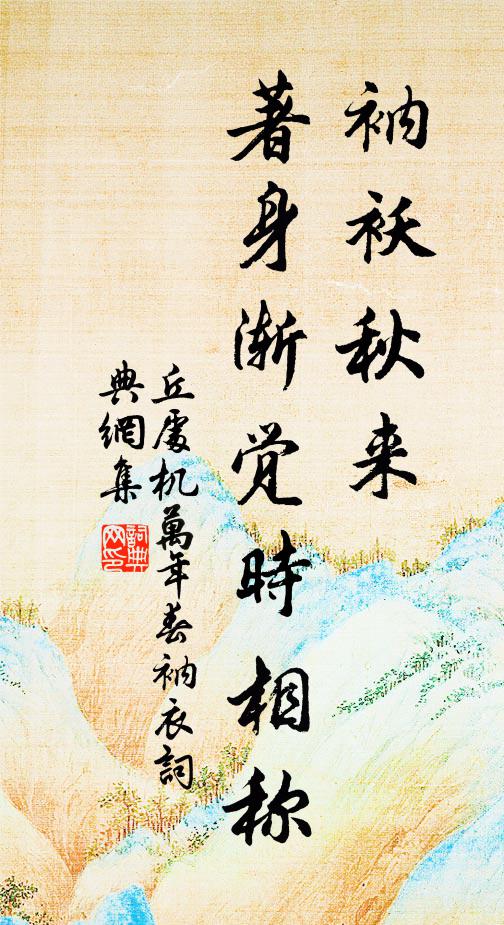 衲袄秋来
著身渐觉時相称
丘處机萬年春衲衣詞
典網集
詞典
网印